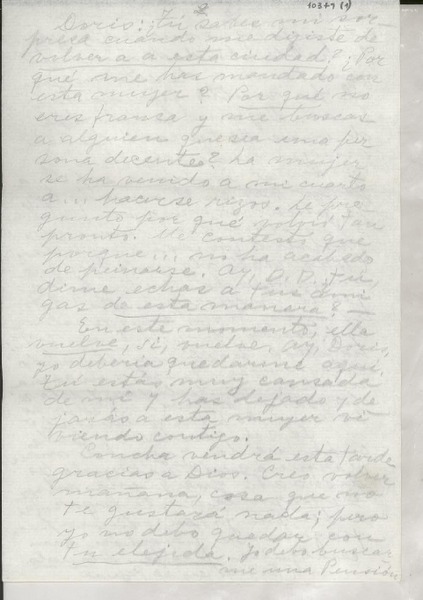 1037 (1)
2
Doris: ¿Tú sabes mi sor-
presa cuando me dijiste de
volver a a esta ciudad? ¿Por
qué me has mandado con
esta mujer? Por qué no
eres franca y me buscas
a alguien que sea una per
sona decente? La mujer
se ha venido a mi cuarto
a... hacerse rizos. Le pre
gunto por qué volvió tan
pronto. Me contestó que
porque... no ha acabado
de peinarse. Ay, D. D., tú,
dime echas a tus ami
gas de esta manera? —
En este momento, ella
vuelve, sí, vuelve, ay, Doris,
yo debería quedarme aquí.
Tú estás muy cansada
de mí y has dejado y de
jarás a esta mujer vi
viendo contigo.
Concha vendrá esta tarde
gracias a Dios. Creo volver
mañana, cosa que no
te gustará nada; pero
yo no debo quedar con
tu elejida. Yo debo buscar
me una Pensión